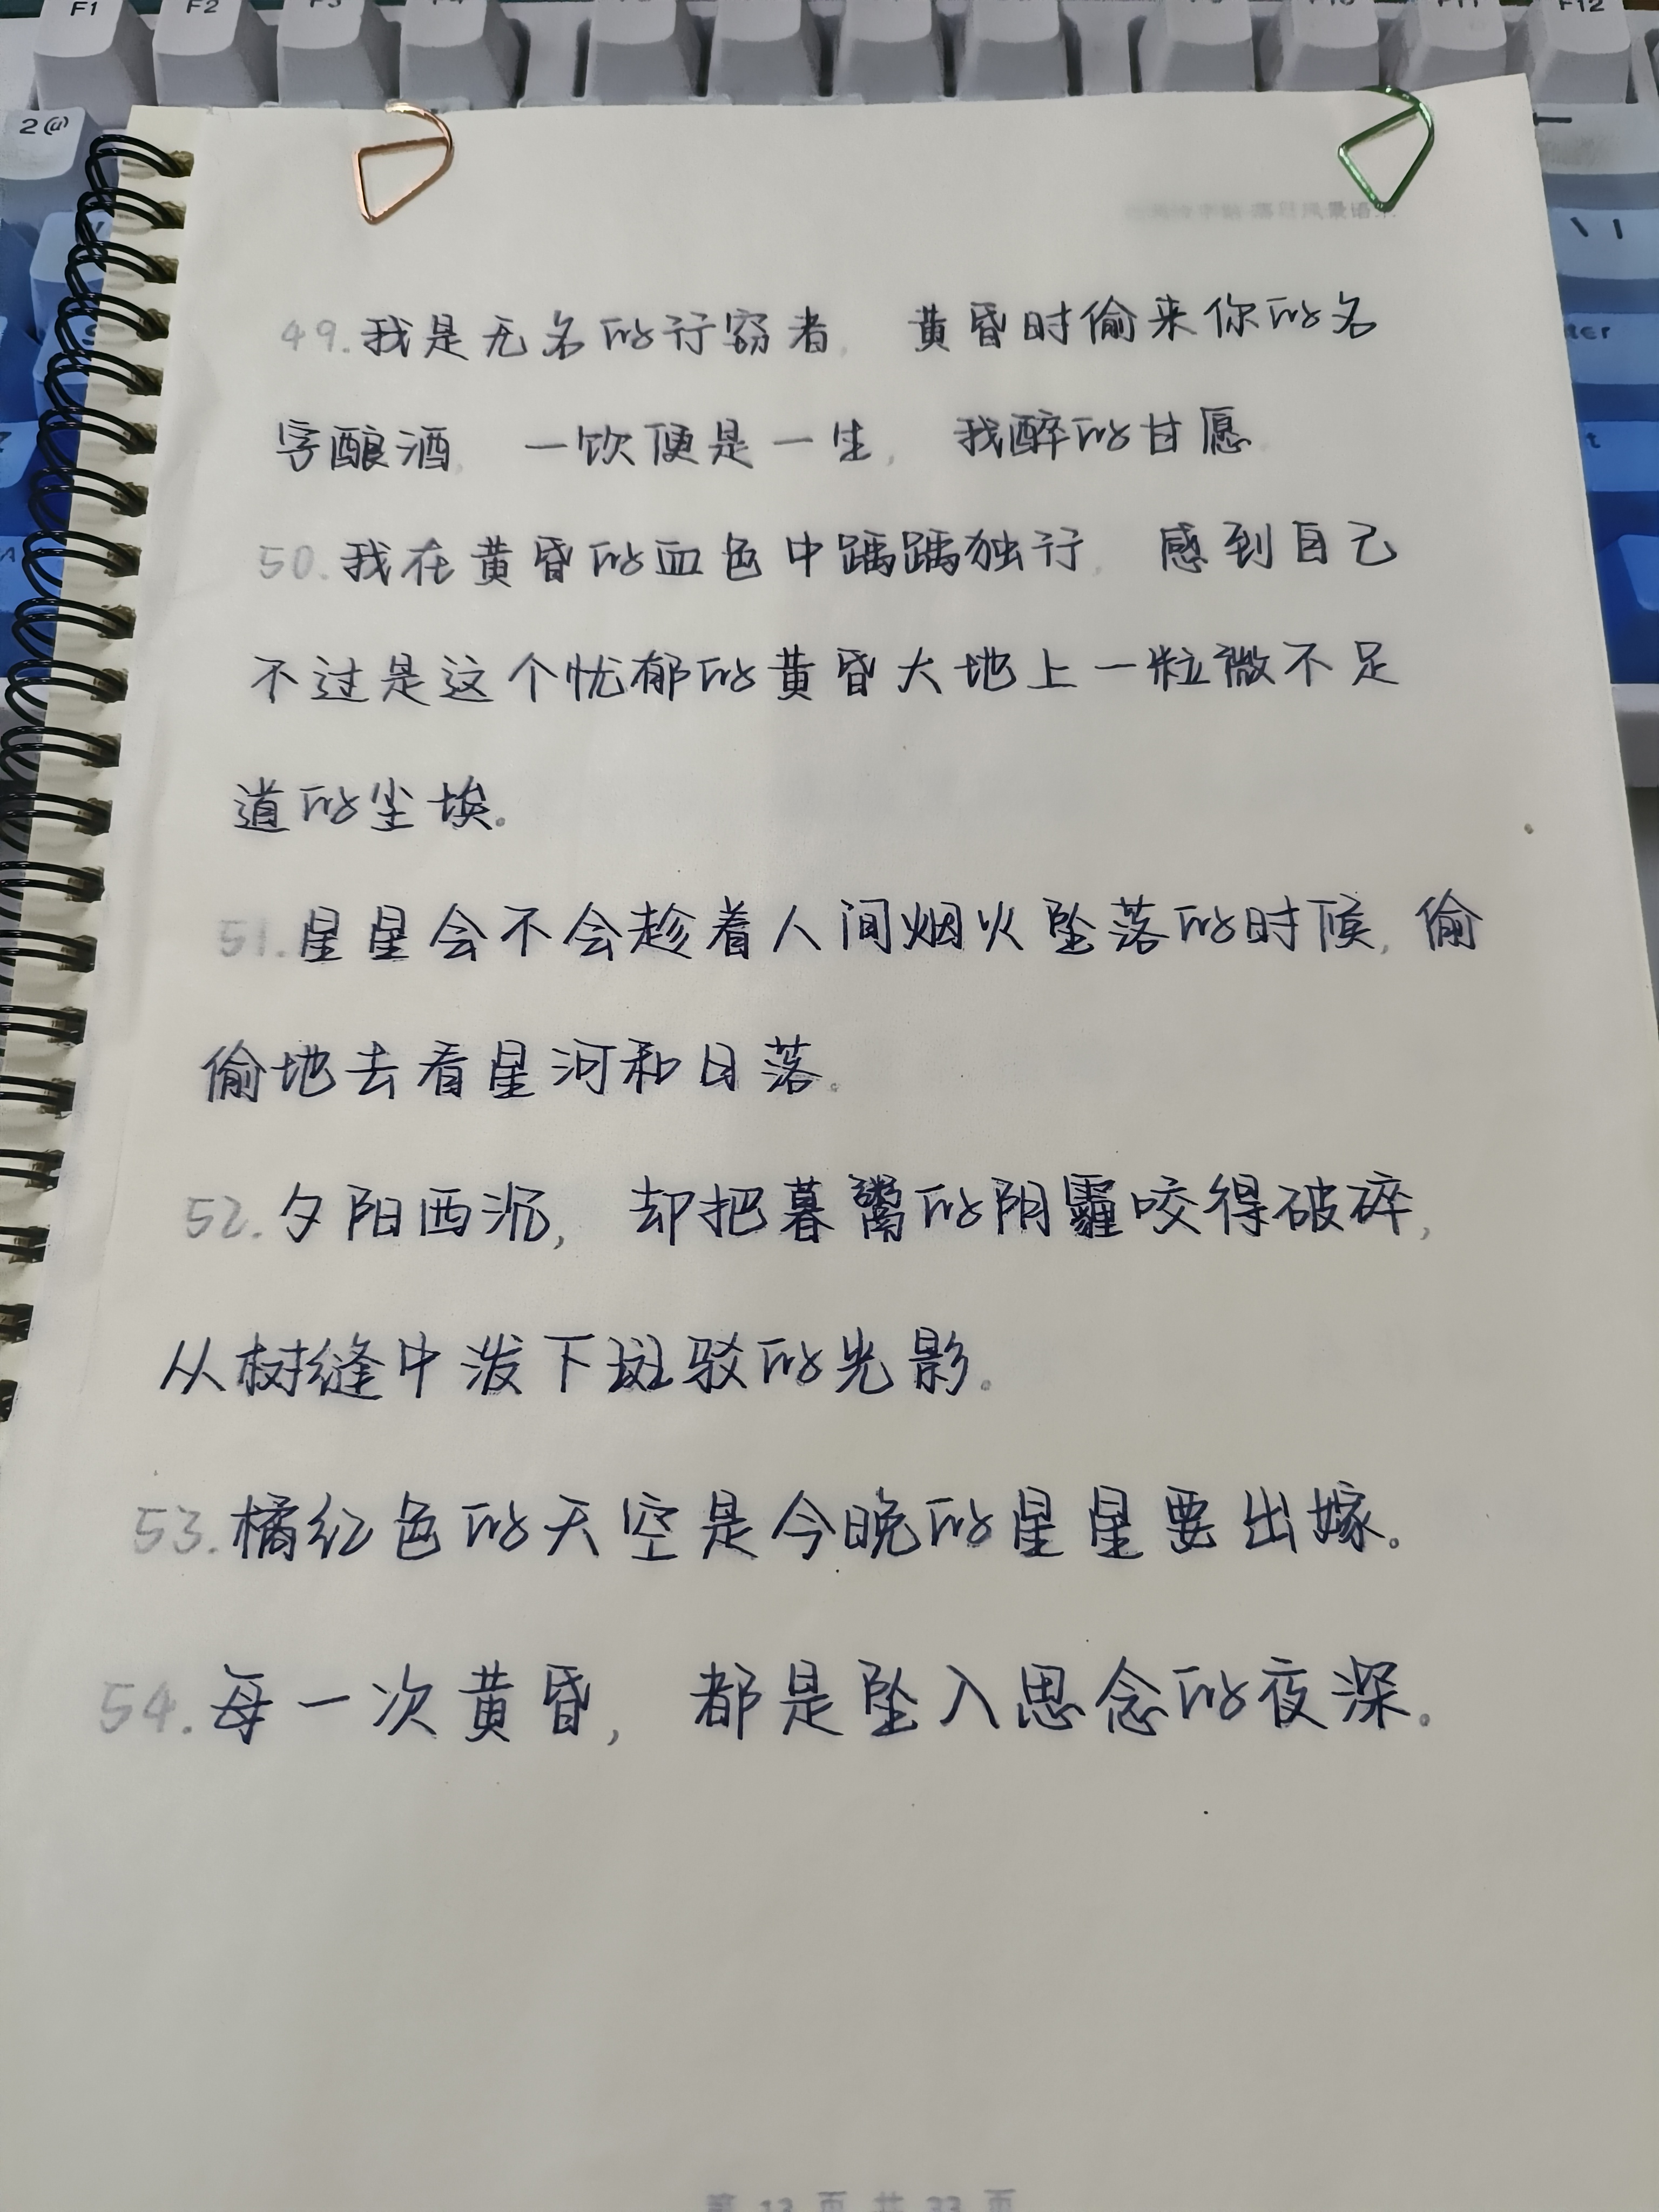 F1 F2 F3 F4 F9 F10 F11 F12
2@
\ |
49.我是无名的行窃者，黄昏时偷来你的名
字酿酒，一饮便是一生，我醉的甘愿
50.我在黄昏的血色中踽踽独行，感到自己
不过是这个忧郁的黄昏大地上一粒微不足
道的尘埃。
51.星星会不会趁着人间烟火坠落的时候，偷
偷地去看星河和日落。
52.夕阳西沉，却把暮鬻的阴霾咬得破碎，
从树缝中泼下斑驳的光影。
53.橘红色的天空是今晚的星星要出嫁。
54.每一次黄昏，都是坠入思念的夜深。
第 13 页 共 33 页